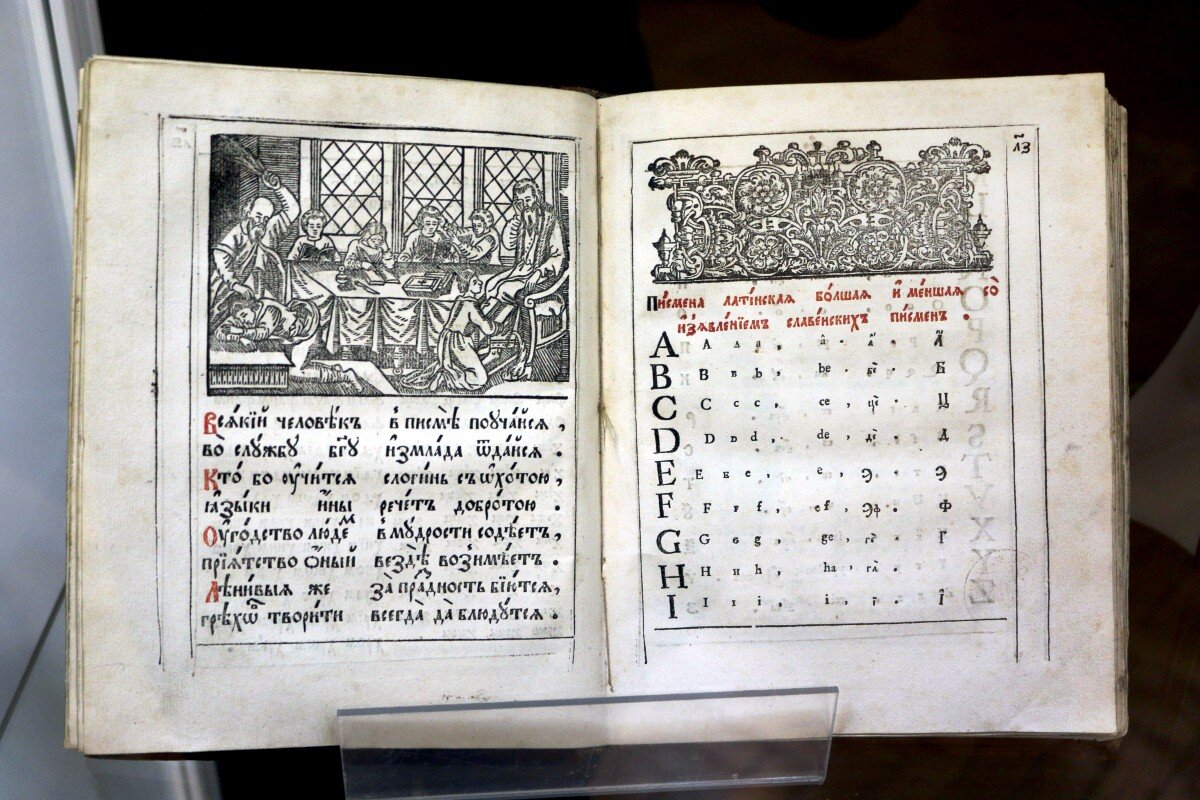 Всѧкїй человѣкъ в писмѣ поучайсѧ,
во службу бг҃у измлада ѿдайсѧ.
Кто бо оучитсѧ слогинь съ ѡхотою,
ꙗзыки ины речетъ добротою.
Оугодство людемъ в мудрости содѣетъ,
прїѧтство ѻный вездѣ возимѣетъ.
Лѣнивыѧ же за праздность бїютсѧ,
грѣхѡ творити всегда да блюдутсѧ.
лз҃
Писмена латінская болшая и меншая со
изѧвленїемъ славенскихъ писменъ.
A A a a, a. а. А
B B в b, be. бе. Б
C C c c, ce, це. Ц
D D d d, de, де. Д
E E e e, e, э. Э
F F f f, ef, эф. Ф
G G g g, ge, ге. Г
H H н h, ha, га.
I I i i, i, ї. Ї